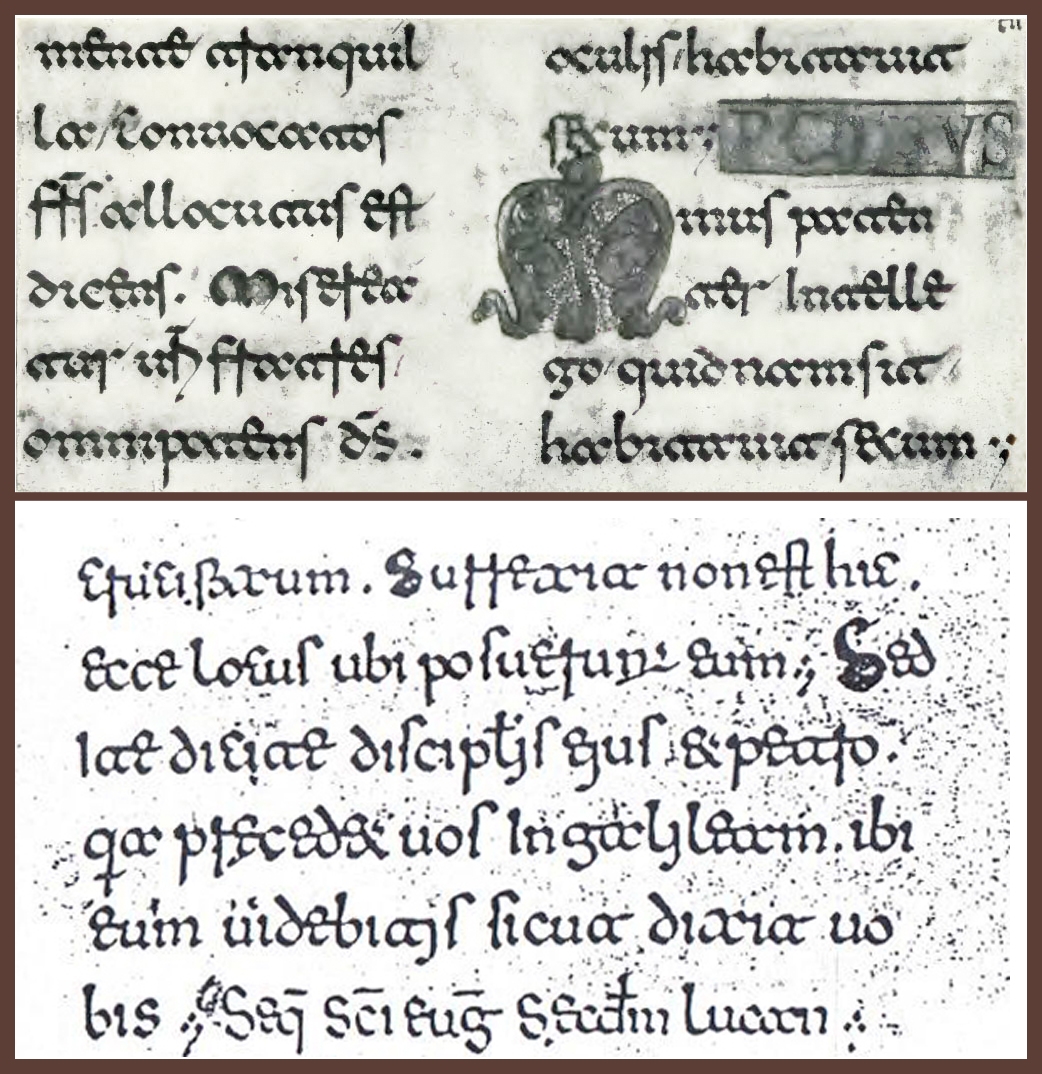 mente tranquil
la, Convocatos
frs̄ allocutus est
dicens. Miserea
tur uħ fratres
omnipotens ds̄.
oculis habitauit
secum; PETRUS
Minus paten
ter Intelle
go quidnam sit
habitauit secum;
crucifixum. Surrexit non est hic.
ecce locus ubi posuerunt eum; Sed
Ite dicite discipłis eius & petro.
qa precedet uos In galileam. ibi
eum uidebitis sicut dixit uo
bis; Seq̄ sc̄i euḡ Secdm̄ lucan